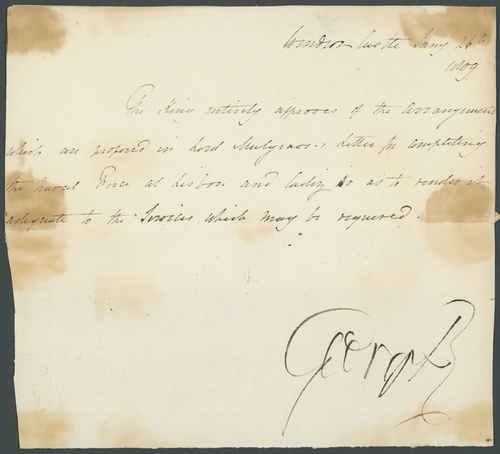 Windsor Castle Jany 26th
1809
The King entirely approves of the arrangements
which are proposed in Lord Mulgrave's Letter for completing
the naval Force at Lisbon and Cadiz so as to render it
adequate to the Services which may be required.
George R